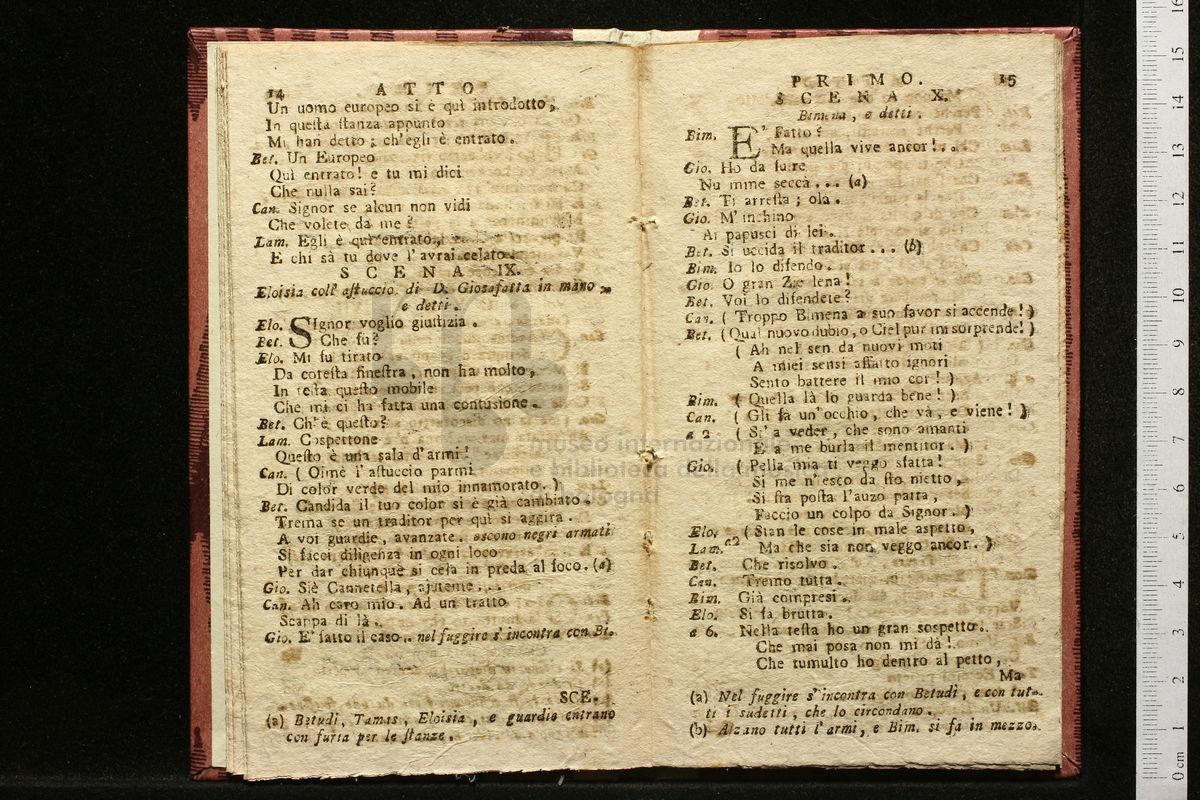 14 A T T O
Un uomo europeo si è quì introdotto,
In questa stanza appunto
Mi han detto; ch'egli è entrato.
Bet. Un Europeo
Quì entrato! e tu mi dici
Che nulla sai?
Can. Signor se alcun non vidi
Che volete da me?
Lam. Egli è quì entrato,
E chi sà tu dove l'avrai celato.
S C E N A IX.
Eloisia coll' astuccio di D. Giosafatta in mano,
e detti.
Elo. SIgnor voglio giustizia.
Bet. Che fu?
Elo. Mi fu tirato
Da cotesta finestra, non ha molto,
In testa questo mobile
Che mi ci ha fatta una contusione.
Bet. Ch'è questo?
Lam. Cospettone
Questo è una sala d'armi!
Can. ( Oimè l'astuccio parmi
Di color verde del mio innamorato. )
Bet. Candida il tuo color si è già cambiato.
Trema se un traditor per quì si aggira.
A voi guardie, avanzate. escono negri armati
Si facci diligenza in ogni loco
Per dar chiunque si cela in preda al foco. (a)
Gio. Siè Cannetella, ajuteme...
Can. Ah caro mio. Ad un tratto
Scappa di là.
Gio. E' fatto il caso.. nel fuggire s'incontra con Bi.
SCE.
(a) Betudì, Tamas, Eloisia, e guardie entrano
con furia per le stanze.
P R I M O. 15
S C E N A X.
Bimena, e detti.
Bim. E' Fatto?
Ma quella vive ancor!..
Gio. Ho da fuire
Nu mme seccà... (a)
Bet. Ti arresta; olà.
Gio. M'inchino
Ai papusci di lei.
Bet. Si uccida il traditor... (b)
Bim. Io lo difendo.
Gio. O gran Zie lena!
Bet. Voi lo difendete?
Can. ( Troppo Bimena a suo favor si accende! )
Bet. ( Qual nuovo dubio, o Ciel pur mi sorprende! )
( Ah nel sen da nuovi moti
A miei sensi affatto ignori
Sento battere il mio cor! )
Bim. ( Quella là lo guarda bene! )
Can. ( Gli fa un'occhio, che và, e viene! )
a 2 ( Si'a veder, che sono amanti
E a me burla il mentitor. )
Gio. ( Pella mia ti veggo sfatta!
Si me n'esco da sto nietto,
Si sta posta l'auzo patta,
Faccio un colpo da Signor. )
Elo. ( Stan le cose in male aspetto,
Lam. a2 Ma che sia non veggo ancor. )
Bet. Che risolvo.
Can. Tremo tutta.
Bim. Già compresi.
Elo. Si fa brutta.
a 6. Nella testa ho un gran sospetto.
Che mai posa non mi dà!
Che tumulto ho dentro al petto,
Ma
(a) Nel fuggire s'incontra con Betudì, e con tut-
ti i sudetti, che lo circondano.
(b) Alzano tutti l'armi, e Bim. si fa in mezzo.